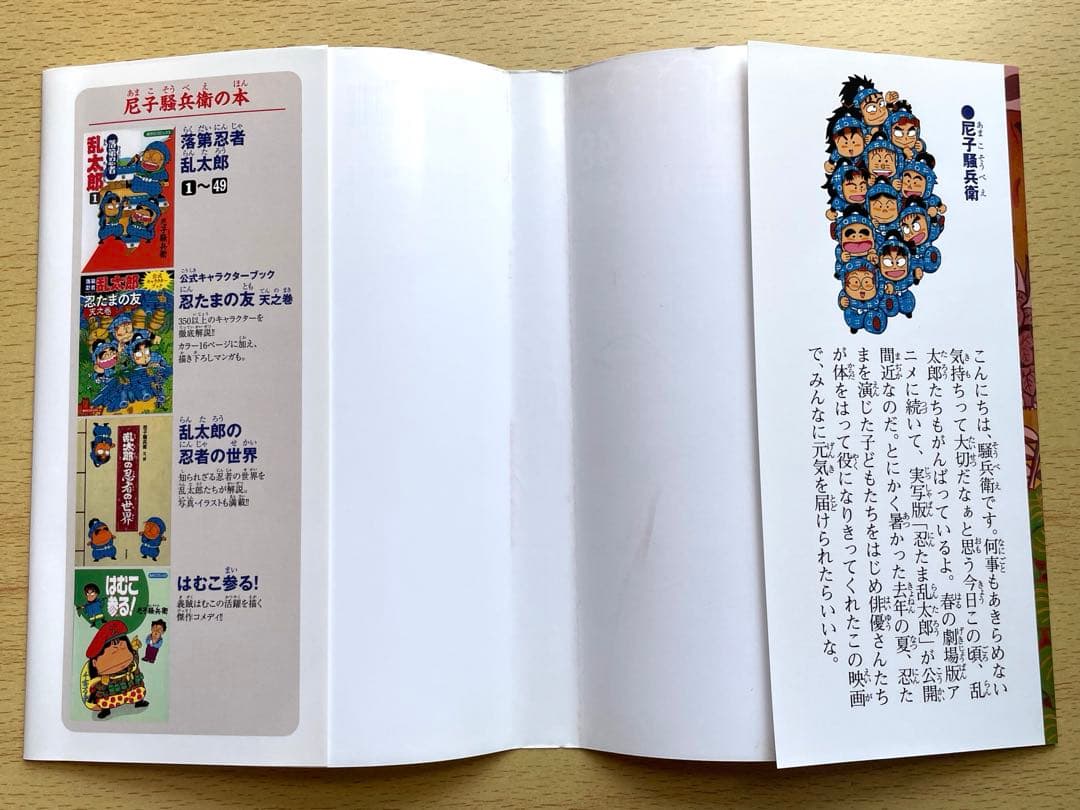 尼子騒兵衛の本
落第忍者
乱太郎
1〜49
落第忍者
乱太郎
1
尼子騒兵衛
公式キャラクターブック
忍たまの友 天之巻
350以上のキャラクターを
徹底解説!!
カラー16ページに加え、
描き下ろしマンガも。
落第忍者
乱太郎
公式キャラクターブック
忍たまの友
天之巻
乱太郎の
忍者の世界
知られざる忍者の世界を
乱太郎たちが解説。
写真・イラストも満載!!
乱太郎の忍者の世界
はむこ参る!
義賊はむこの活躍を描く
傑作コメディ!!
はむこ
参る!
尼子騒兵衛
●尼子騒兵衛
こんにちは、騒兵衛です。何事もあきらめない
気持ちって大切だなぁと思う今日この頃、乱
太郎たちもがんばっているよ。春の劇場版ア
ニメに続いて、実写版「忍たま乱太郎」が公開
間近なのだ。とにかく暑かった去年の夏、忍た
まを演じた子どもたちをはじめ俳優さんたち
が体をはって役になりきってくれたこの映画
で、みんなに元気を届けられたらいいな。